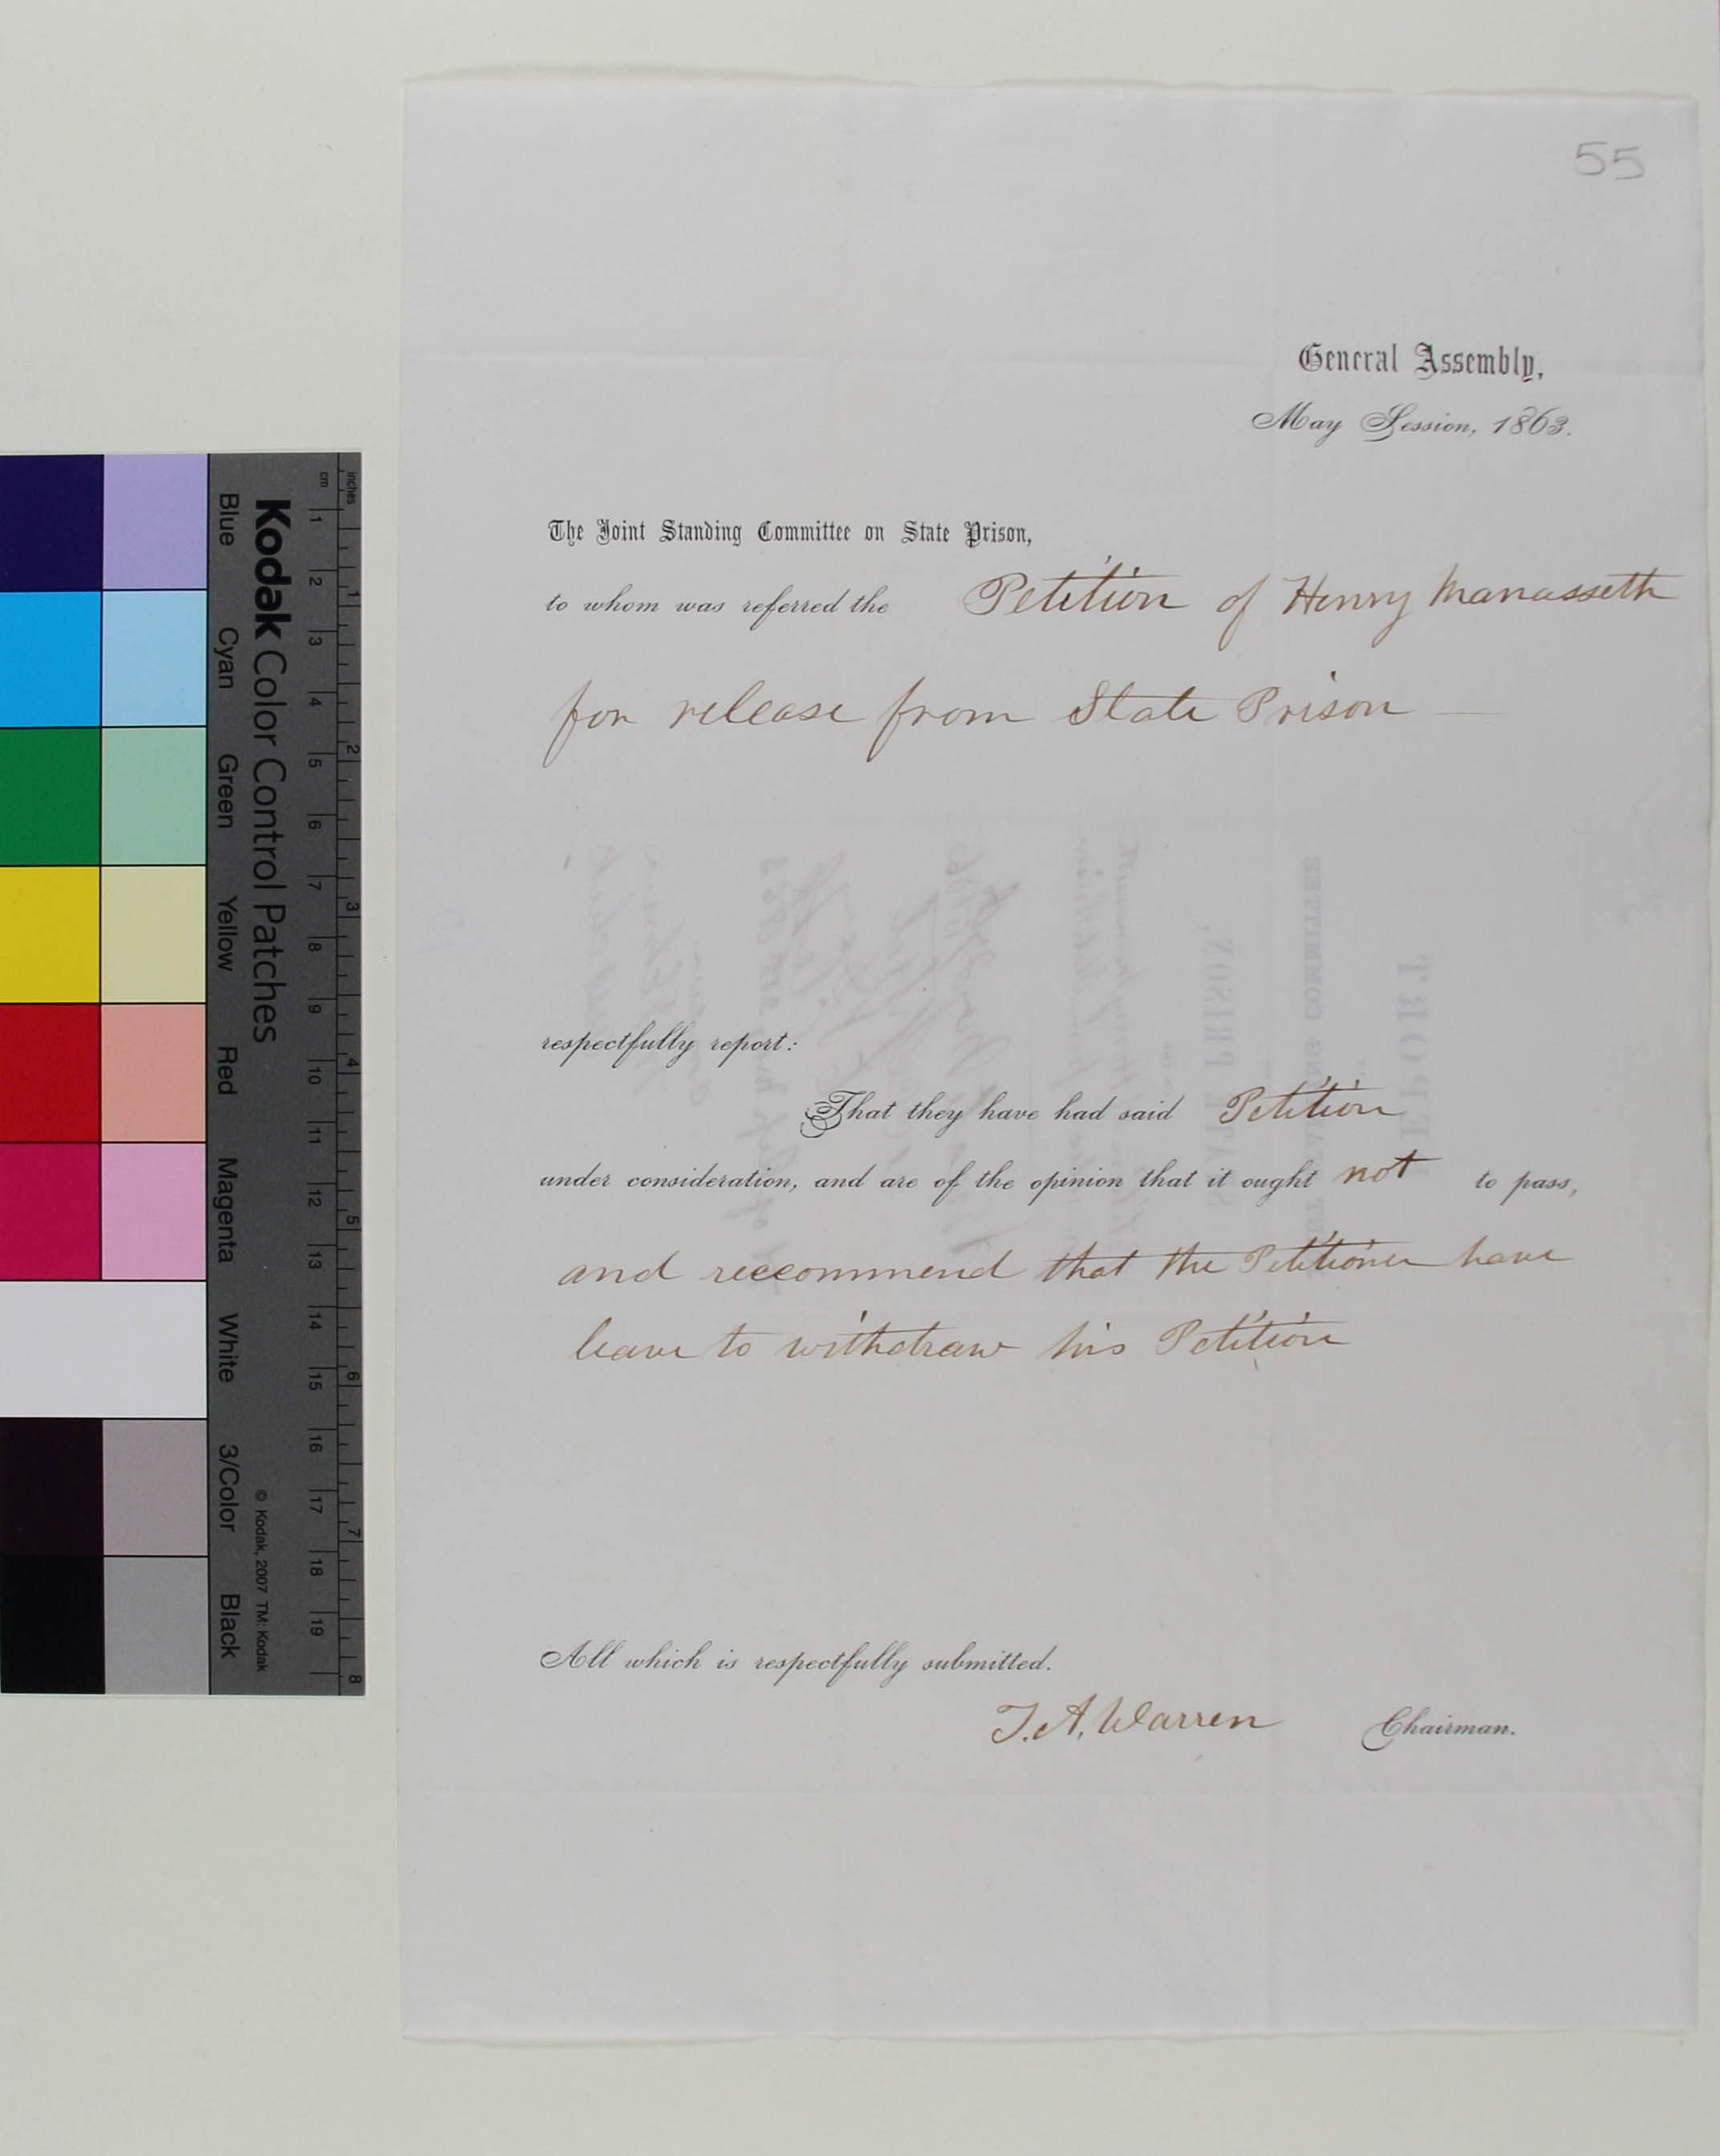 55
General Assembly,
May Session, 1863.
The Joint Standing Committee on State Prison,
to whom was referred the Petition of Henry Manasseth
for release from State Prison
respectfully report:
That they have had said Petition
under consideration, and are of the opinion that it ought not to pass,
and reccommend that the Petitioner have
leave to withdraw his Petition
All which is respectfully submitted.
T. A. Warren Chairman.
Kodak Color Control Patches
© Kodak, 2007 TM: Kodak
Blue Cyan Green Yellow Red Magenta White 3/Color Black
inches 1 2 3 4 5 6 7 8
cm 1 2 3 4 5 6 7 8 9 10 11 12 13 14 15 16 17 18 19
REPORT
STANDING COMMITTEE
STATE PRISON,